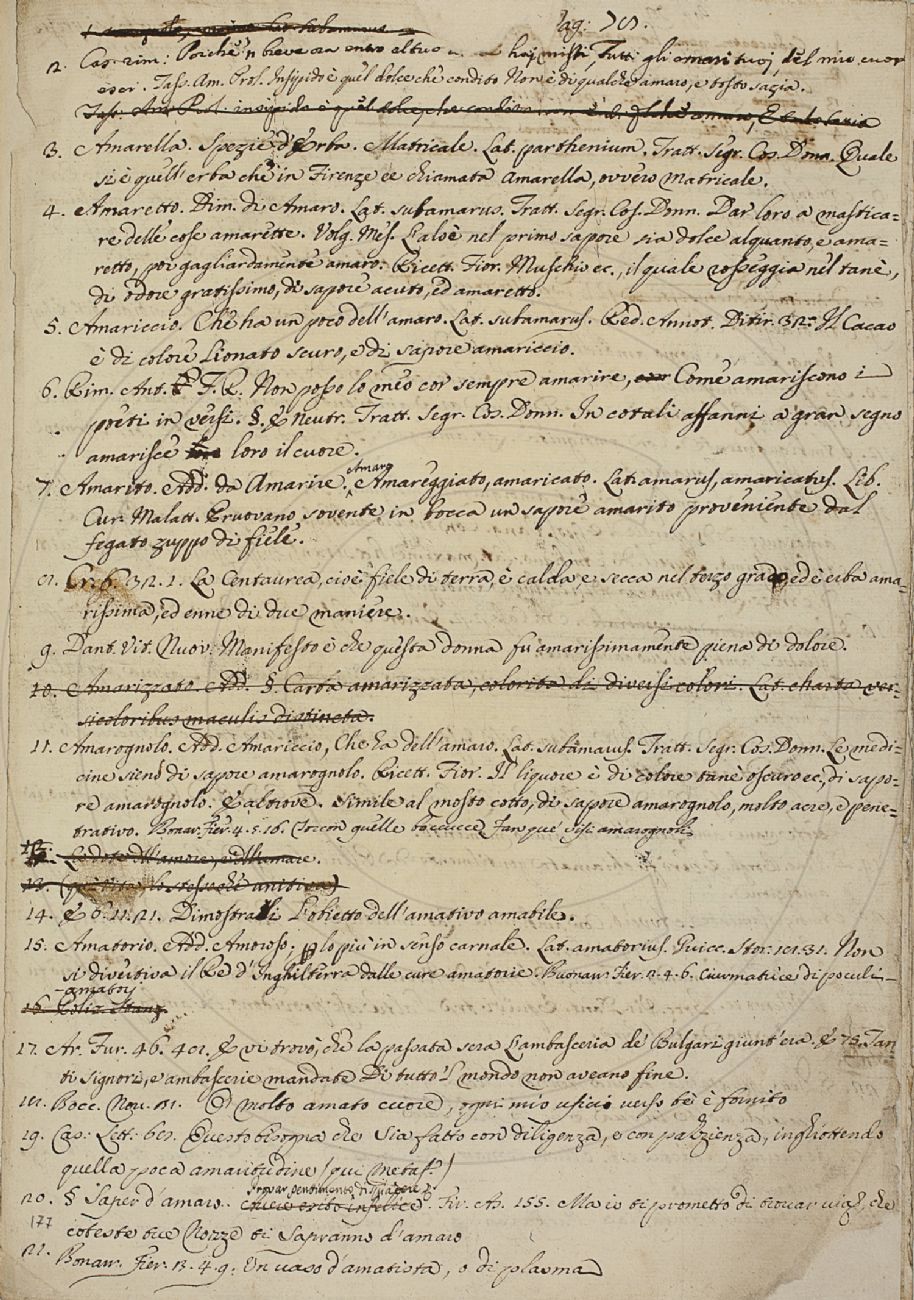 pag: 78.
2. Cas. rim: Poichè 'n breve ora entro al tuo hai misti Tutti gli amari tuoi, del mio cuor
esci. Tass. Am. Prol. Insipido è quel dolce che condito Non è di qualche amaro, e tosto sazia.
3. Amarella. Spezie d'Erba. Matricale. Lat. parthenium. Tratt. Segr. Cos. Donn. Quale
si è quell'erba che in Firenze ee chiamata amarella, ovvero matricale.
4. Amaretto. Dim. di Amaro. Lat. subamarus. Tratt. Segr. Cos. Donn. Dar loro a mastica=
re delle cose amarette. Volg. Mes. L'aloè nel primo sapore sia dolce alquanto, e ama=
retto, poi gagliardamente amaro. Ricett. Fior. Muschio ec., il quale rosseggia nel tanè,
di odore gratissimo, di sapore acuto, ed amaretto.
5. Amariccio. Che ha un poco dell'amaro. Lat. subamarus. Red. Annot. Ditir. 32. Il Cacao
è di colore Lionato scuro, e di sapore amariccio.
6. Rim. Ant. F. R. Non posso lo meo cor sempre amarire, Come amariscono i
preti in versi. §. E Neutr. Tratt. Segr. Cos. Donn. In cotali affanni a gran segno
amarisce loro il cuore.
7. Amarito. Add. da Amarire. Amaro Amareggiato, amaricato. Lat. amarus, amaricatus. Lib.
Cur. Malatt. Pruovano sovente in bocca un sapore amarito proveniente dal
fegato zuppo di fiele.
8. Cr. 6. 32. 1. La Centaurea, cioè fiele di terra, è calda, e secca nel terzo grado, ed è erba ama=
rissima, ed enne di due maniere.
9. Dant. Vit. Nuov. Manifesto è che questa donna fu amarissimamente piena di dolore.
10. Amarizzato. Add. §. Carta amarizzata, colorita di diversi colori. Lat. charta ver=
sicoloribus maculis distincta.
11. Amarognolo. Add. Amariccio, Che ha dell'amaro. Lat. subamarus. Tratt. Segr. Cos. Donn. Le medi=
cine sieno di sapore amarognolo. Ricett. Fior. Il liquore è di colore tanè oscuro ec, di sapo=
re amarognolo. E altrove. Simile al mosto cotto, di sapore amarognolo, molto acre, e pene=
trativo. Bonar. Fier. 4. 5. 16. Torcon quelle boccucce
12. Le dote dell'amore, e dell'amare.
13. lo stesso che unitiva)
14. E 6. 11. 21. Dimostra li L'obietto dell'amativo amabile.
15. Amatorio. Add. Amoroso; p lo più in senso carnale. Lat. amatorius. Guicc. Stor. 18. 31. Non
si divertiva il Re d'Inghilterra dalle cure amatorie. Buonarr. Fier. 2. 4. 6. Ciurmatrice di poculi
amatorj
16. Poliz. Stanz.
17. Ar. Fur. 46. 48. E vi trovò, che la passata sera L'ambasceria de' Bulgari giunt'era. E 73. Tan
ti signori, e ambascerie mandate Di tutto 'l mondo non aveano fine.
18. Bocc. Nov. 31. O molto amato cuore, ogni mio uficio verso te è fornito
19. Cas: Lett: 68. Questo bisogna che Sia fatto con diligenza, e con pazienza, inghiottendo
quella poca amaritudine (qui metaf.)
20. § Saper d'amaro.. Provar pentimento, dispiacere Fir. As. 155. Ma io ti prometto di trovar via, che
coteste tue Nozze ti Sapranno d'amaro
177
21. Bonarr. Fier. 3. 4. 9. Un vaso d'amatista, o di plasma